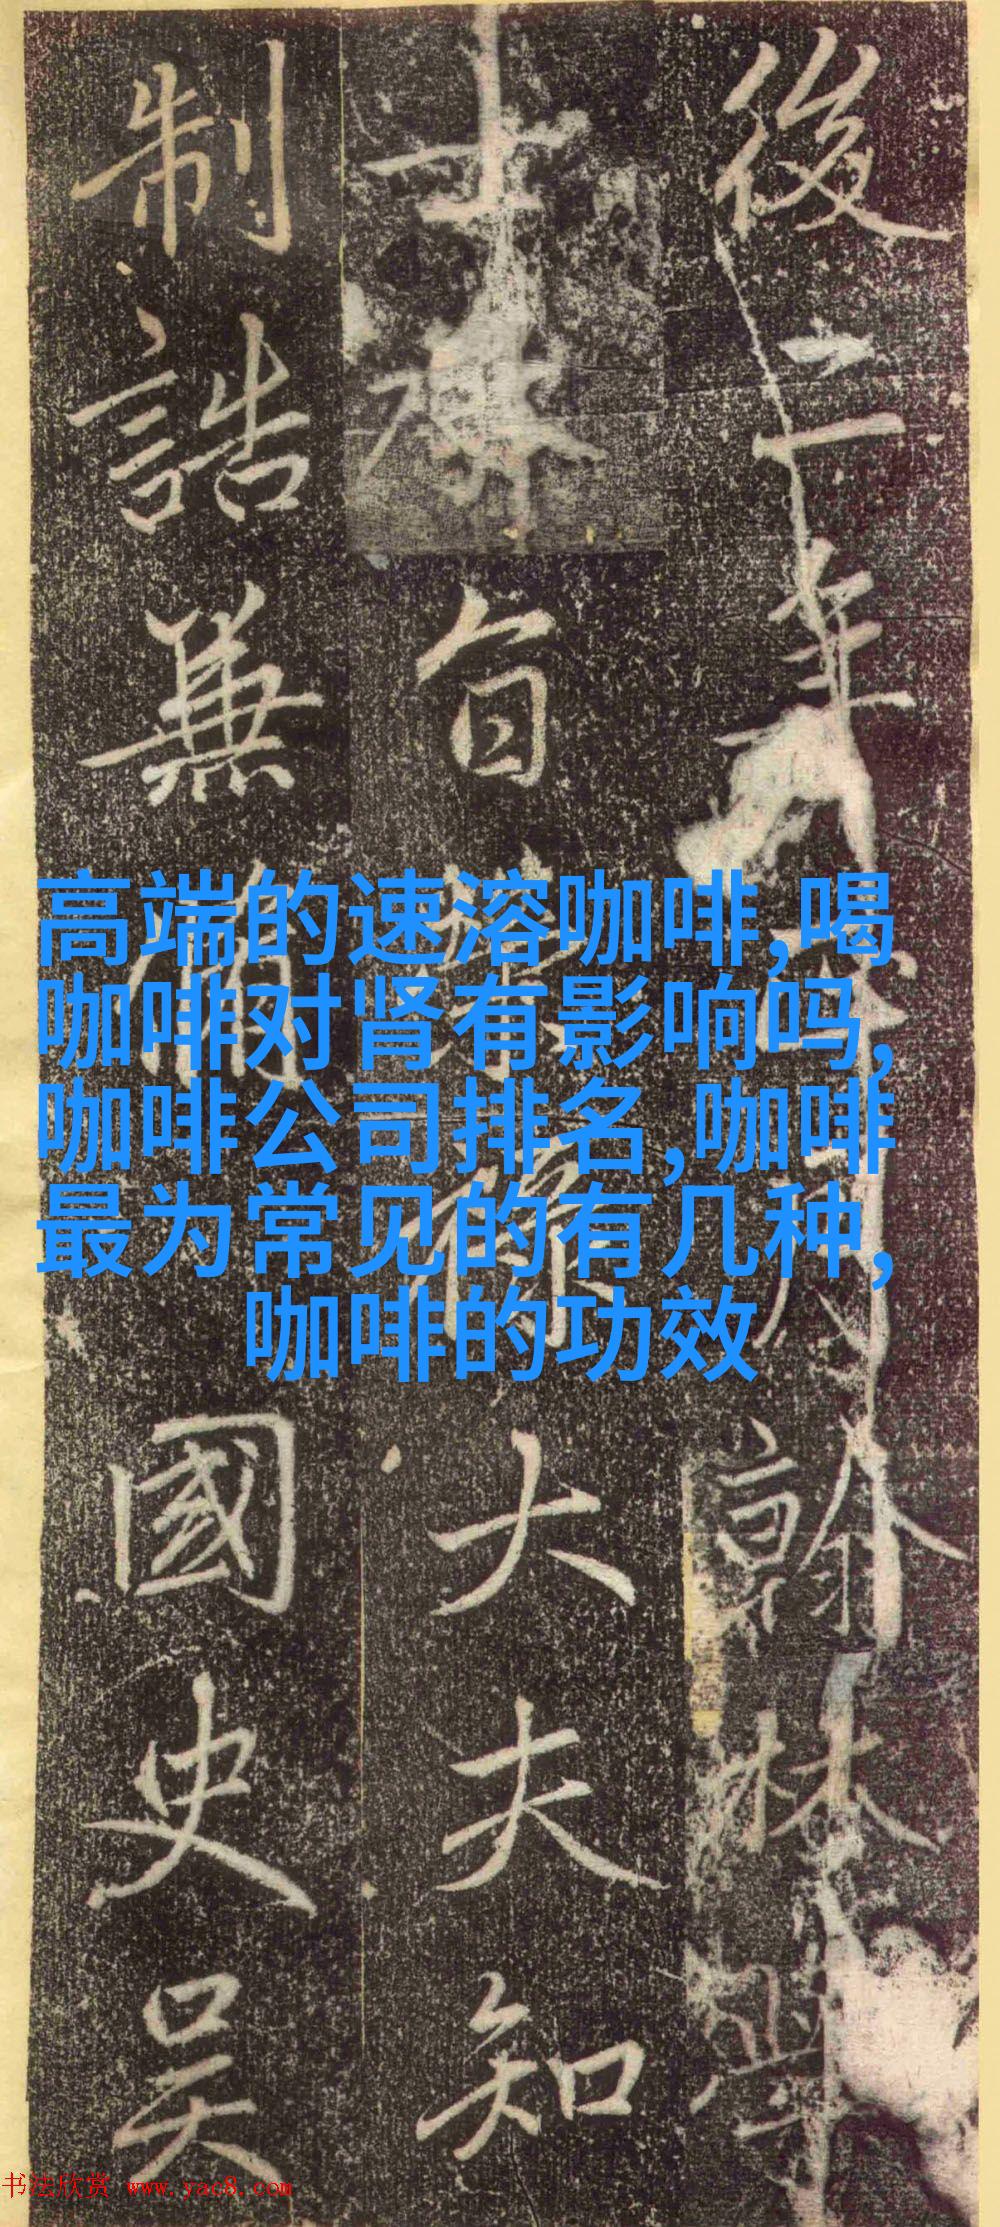 後二年翰林學
士旨大夫知
制誥兼國史吳
高端的速溶咖啡,喝
咖啡对肾有影响吗,
咖啡公司排名,咖啡
最为常见的有几种,
咖啡的功效
书法欣赏 www.yac8.com